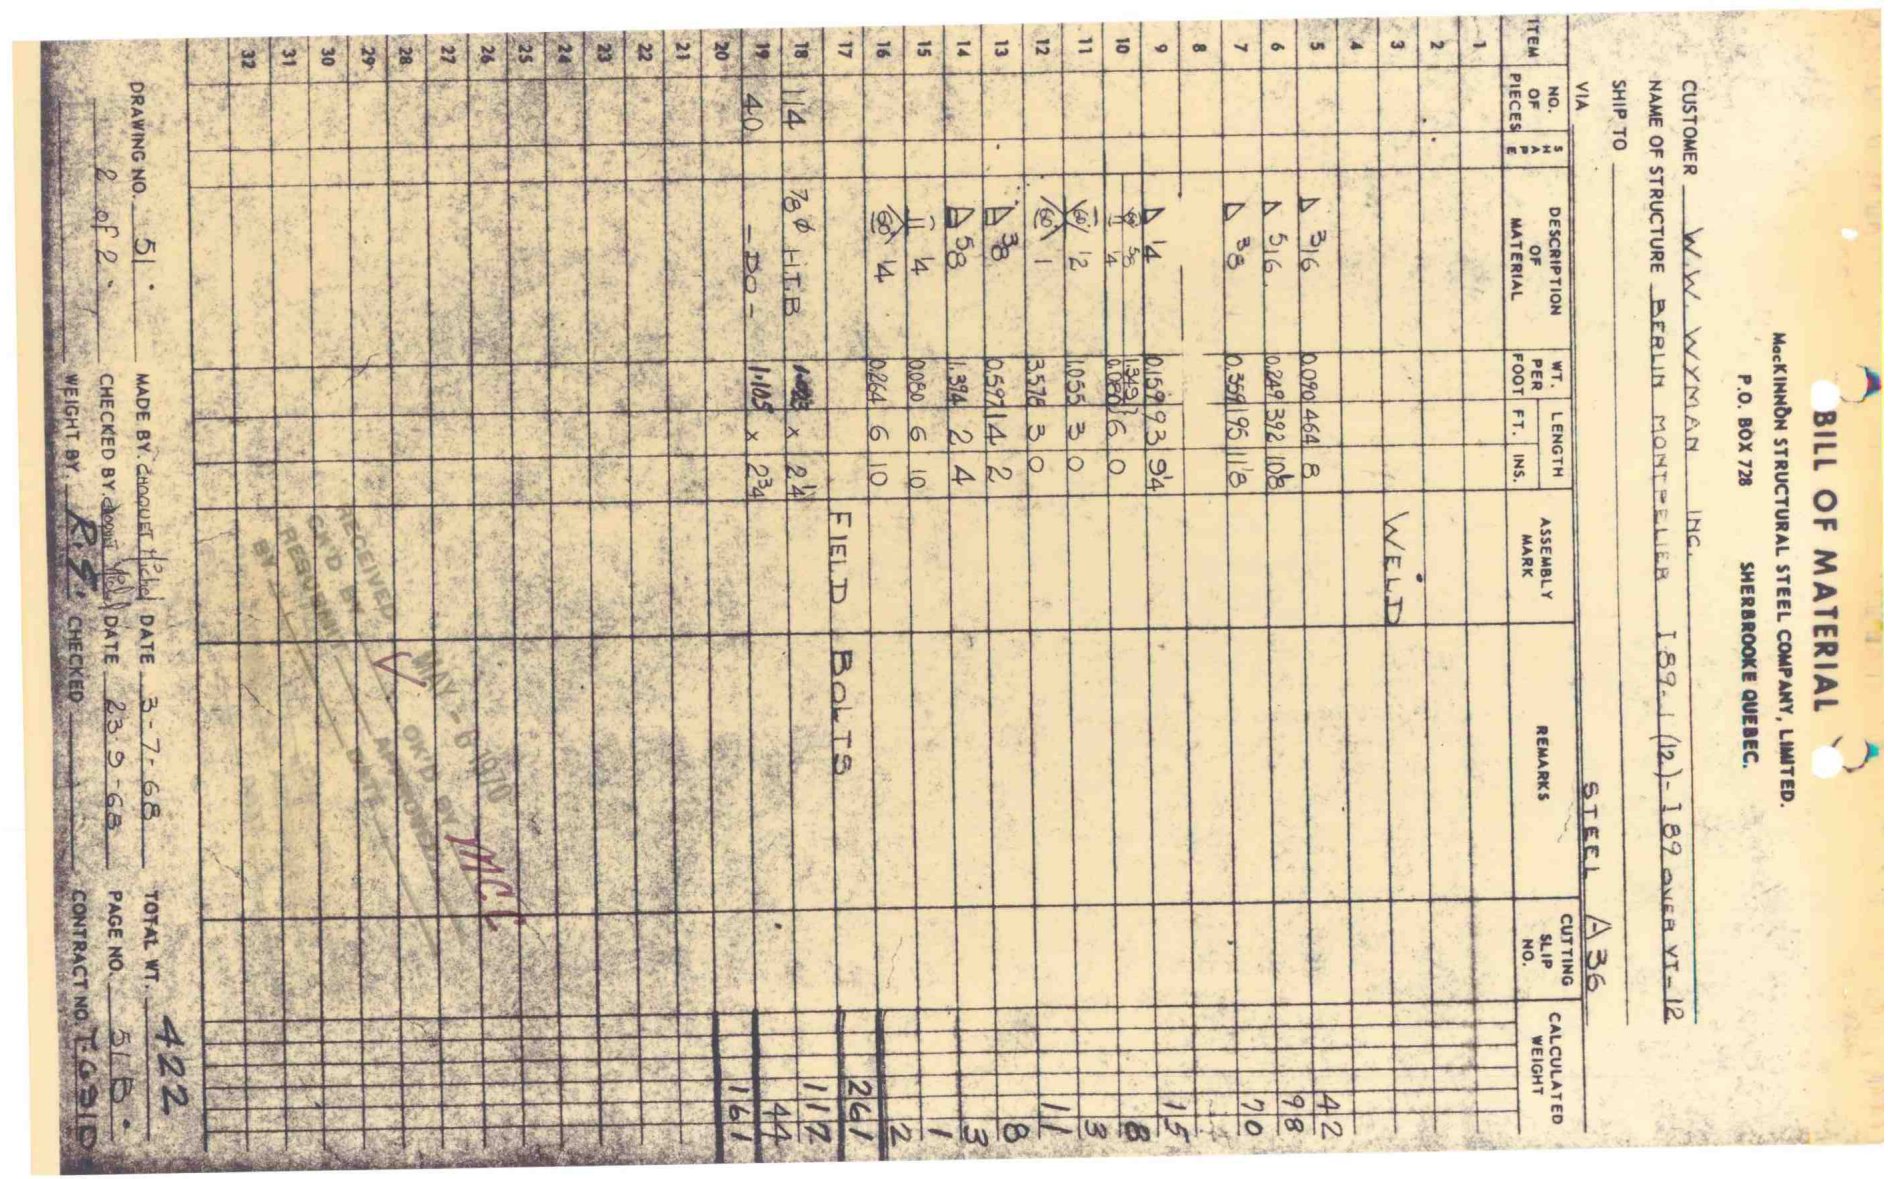 BILL OF MATERIAL
MacKINNON STRUCTURAL STEEL COMPANY, LIMITED.
P.O. BOX 728 SHERBROOKE QUEBEC.
CUSTOMER W.W. WYMAN INC.
NAME OF STRUCTURE BERLIN MONTPELIER I 89-1(12)-I 89 OVER VT-12
SHIP TO
VIA STEEL A36
ITEM NO. OF PIECES SHAPE DESCRIPTION OF MATERIAL WT. PER FOOT LENGTH FT. INS. ASSEMBLY MARK REMARKS CUTTING SLIP NO. CALCULATED WEIGHT
1
2
3 WELD
4
5 3/16 0.090 464 8 42
6 5/16 0.249 392 10 1/8 98
7 3/8 0.359 195 11 1/8 70
8
9 1/4 0.159 93 9 1/4 15
10 60 5/8 1/4 1.349 0.080 6 0 8
11 60 1/2 1.055 3 0 3
12 60 1 3.578 3 0 11
13 3/8 0.597 14 2 8
14 5/8 1.394 2 4 3
15 1/4 0.080 6 10 1
16 60 1/4 0.264 6 10 2
17 FIELD BOLTS 261
18 114 7/8 Ø H.T.B x 2 1/4 117
19 40 -DO- 1.105 x 2 3/4 44
20 161
21
22
23
24
25
26
27
28
29
30
31
32
RECEIVED MAY - 6 1970
CK'D BY OK'D BY M.C.C.
RESUBMIT APPROVED
BY DATE
DRAWING NO. 51 MADE BY. CHOQUET Michel DATE 3-7-68 TOTAL WT. 422
2 of 2 CHECKED BY. DATE 23-9-68 PAGE NO. 51B
WEIGHT BY. R.S. CHECKED CONTRACT NO.